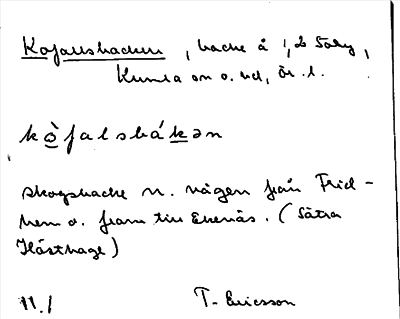 Kofallsbacken, backe å 1,2 Sörby,
Kumla sn o. hd, Ör. l.
kòfalsbákən
skogsbacke N. vägen från Frid-
hem o. fram till Ekenäs. (Sätra
Hästhage)
11./ T. Ericsson